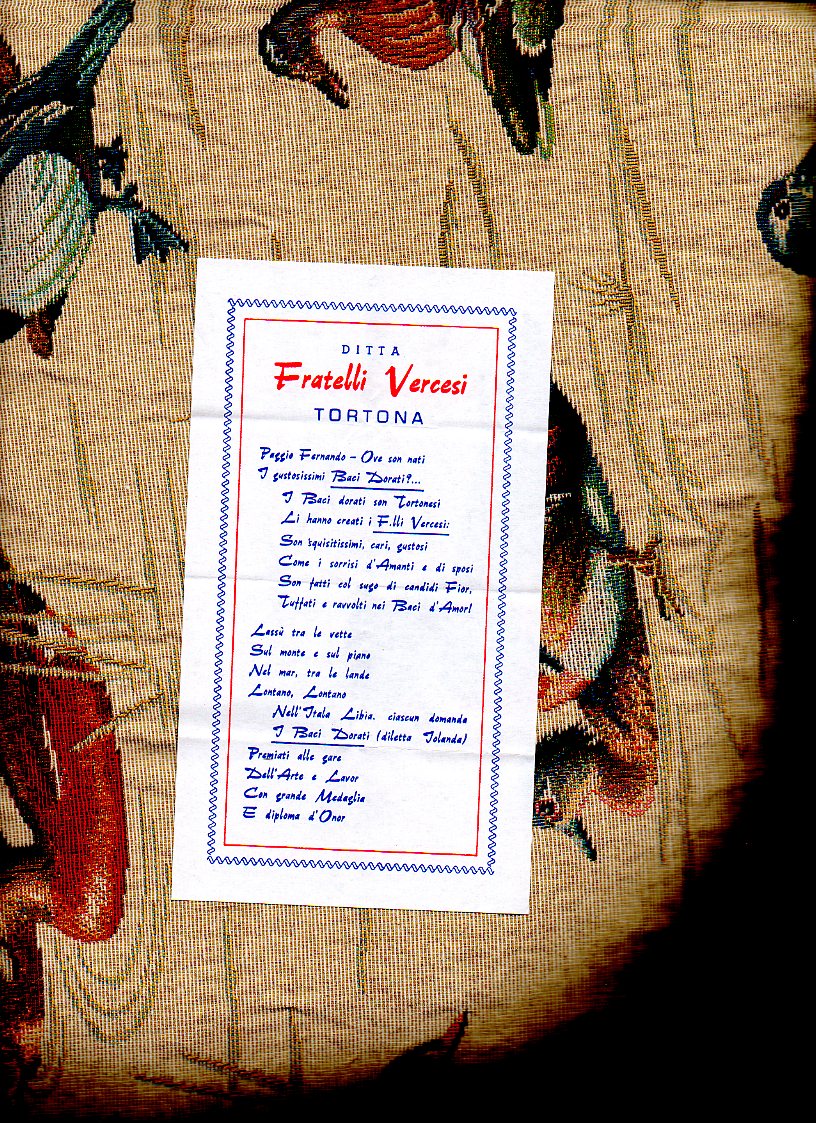 DITTA
Fratelli Vercesi
TORTONA
Paggio Fernando - Ove son nati
I gustosissimi Baci Dorati?...
I Baci dorati son Tortonesi
Li hanno creati i F.lli Vercesi:
Son squisitissimi, cari, gustosi
Come i sorrisi d'Amanti e di sposi
Son fatti col sugo di candidi Fior,
Tuffati e ravvolti nei Baci d'Amor!
Lassù tra le vette
Sul monte e sul piano
Nel mar, tra le lande
Lontano, Lontano
Nell'Itala Libia. ciascun domanda
I Baci Dorati (diletta Iolanda)
Premiati alle gare
Dell'Arte e Lavor
Con grande Medaglia
E diploma d'Onor